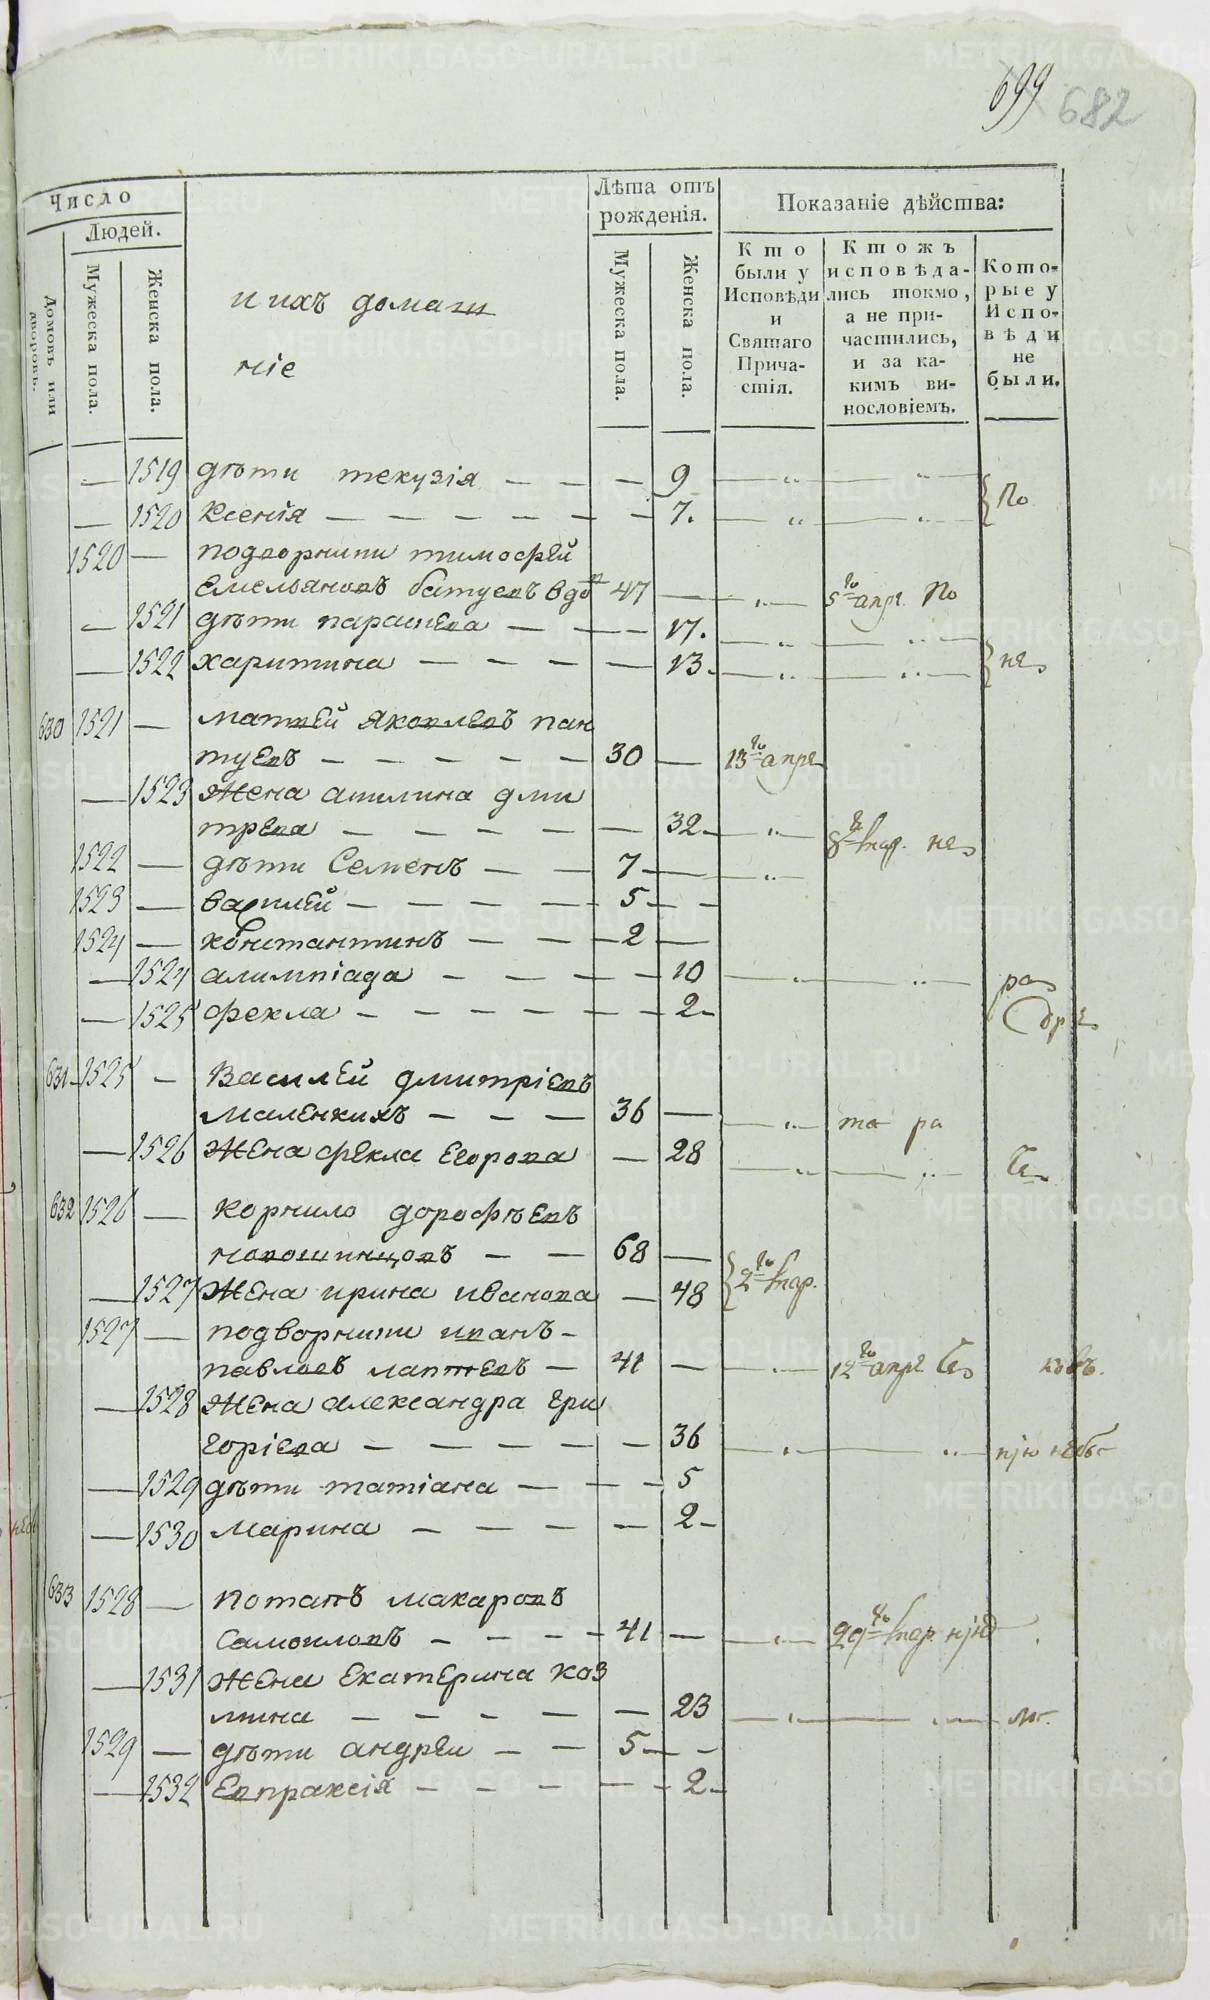 699 682
Число
Людей.
Домовъ или дворовъ.
Мужеска пола.
Женска пола.
и ихъ домаш
ніе
Лѣта отъ
рожденія.
Мужеска пола.
Женска пола.
Показаніе дѣйства:
Кто
были у
Исповѣди
и
Святаго
Прича-
стія.
Ктожъ
исповѣда-
лись токмо,
а не при-
частились,
и за ка-
кимъ ви-
нословіемъ.
Кото-
рые у
Испо-
вѣди
не
были.
— 1519 дѣти текузія — — — 9 — „ — — „ —
— 1520 Ксенія — — — — — — 7. — „ — „ — По
1520 — подворники тимофей
Емельяновъ батуевъ вдо 47 — — „ — 5го апр. По
— 1521 дѣти парасковѣа — — — 17. — „ — — „ —
— 1522 харитина — — — — — 13. — „ — — „ — не
630 1521 — матвей яковлевъ пан
туевъ — — — — — 30 — 13го апре
— 1523 жена акилина дми
трева — — — — — 32 — — „ — 8го мар. не
1522 — дѣти Семенъ — — 7 — — „ —
1523 — василей — — — — — 5 — —
1524 — константинъ — — — 2 —
— 1524 алимпіада — — — — 10 — „ — — „ — ра
— 1525 фекла — — — — — — 2 —
631 1525 — Василей дмитріевъ
маленкихъ — — — 36 — — „ — та ра
— 1526 жена фекла егорова — 28 — „ — — „ —
632 1526 — корнило дорофѣевъ
новошинцовъ — — 68 —
— 1527 жена ирина иванова — 48 2го мар.
1527 — подворники иванъ —
павловъ лаптевъ — 41 — — „ — 12го апре
— 1528 жена александра гри
горіева — — — — — 36 — „ — — „ —
— 1529 дѣти татіана — — — 5
— 1530 марина — — — — 2 —
633 1528 — потапъ макаровъ
Самоиловъ — — — — 41 — — „ — 29го мар.
— 1531 жена екатерина коз
мина — — — — — — 23 — „ — — „ —
1529 — дѣти андреи — — 5 — —
— 1532 Евпраксія — — — — — 2 —
METRIKI.GASO-URAL.RU